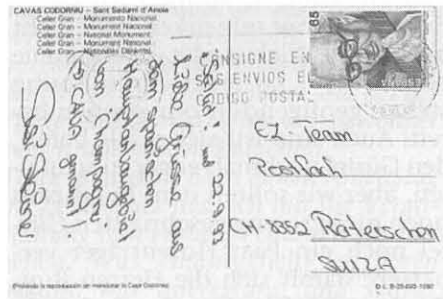 CAVAS CODORNIU – Sant Sadurní d'Anoia
Celler Gran – Monumento Nacional.
Celler Gran – Monument Nacional.
Celler Gran – National Monument.
Celler Gran – Monument National.
Celler Gran – Nationales Denkmal.
65
ESPAÑA
CONSIGNE EN
ENVIOS
CODIGO POSTAL
Salud! und 22.9.92
Liebe Grüsse aus
dem spanischen
von Champagner
(= CAVA genannt).
EZ-Team
Postfach
CH-8352 Räterschen
SUIZA
Prohibida la reproducción sin mencionar la Casa Codorniu